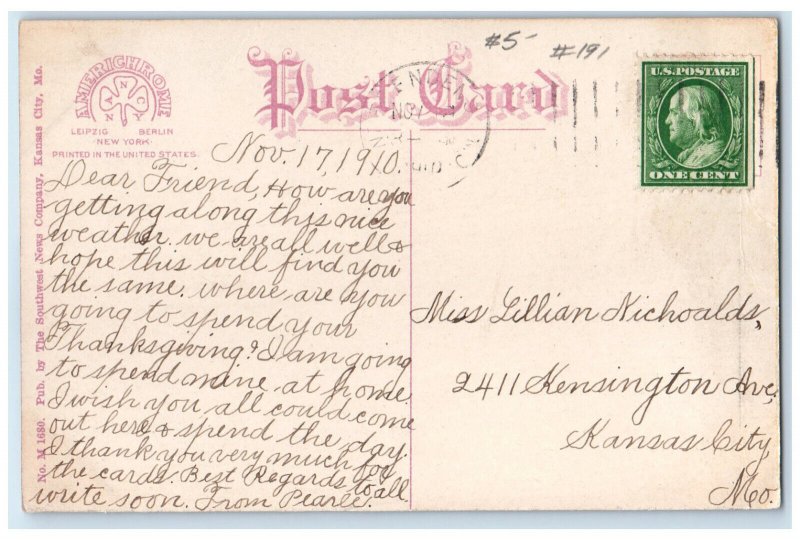 #5- #191
AMERICHROME
ANCY
LEIPZIG BERLIN
NEW YORK
PRINTED IN THE UNITED STATES
Post Card
NOV
U.S. POSTAGE
ONE CENT
No. M 1680. Pub. by The Southwest News Company, Kansas City, Mo.
Nov. 17, 1910.
Dear Friend, How are you
getting along this nice
weather. we are all well &
hope this will find you
the same. where are you
going to spend your
Thanksgiving? I am going
to spend mine at home.
I wish you all could come
out here & spend the day.
I thank you very much for
the cards. Best Regards to all
write soon. From Pearle.
Miss Lillian Nichoalds,
2411 Kensington Ave,
Kansas City,
Mo.